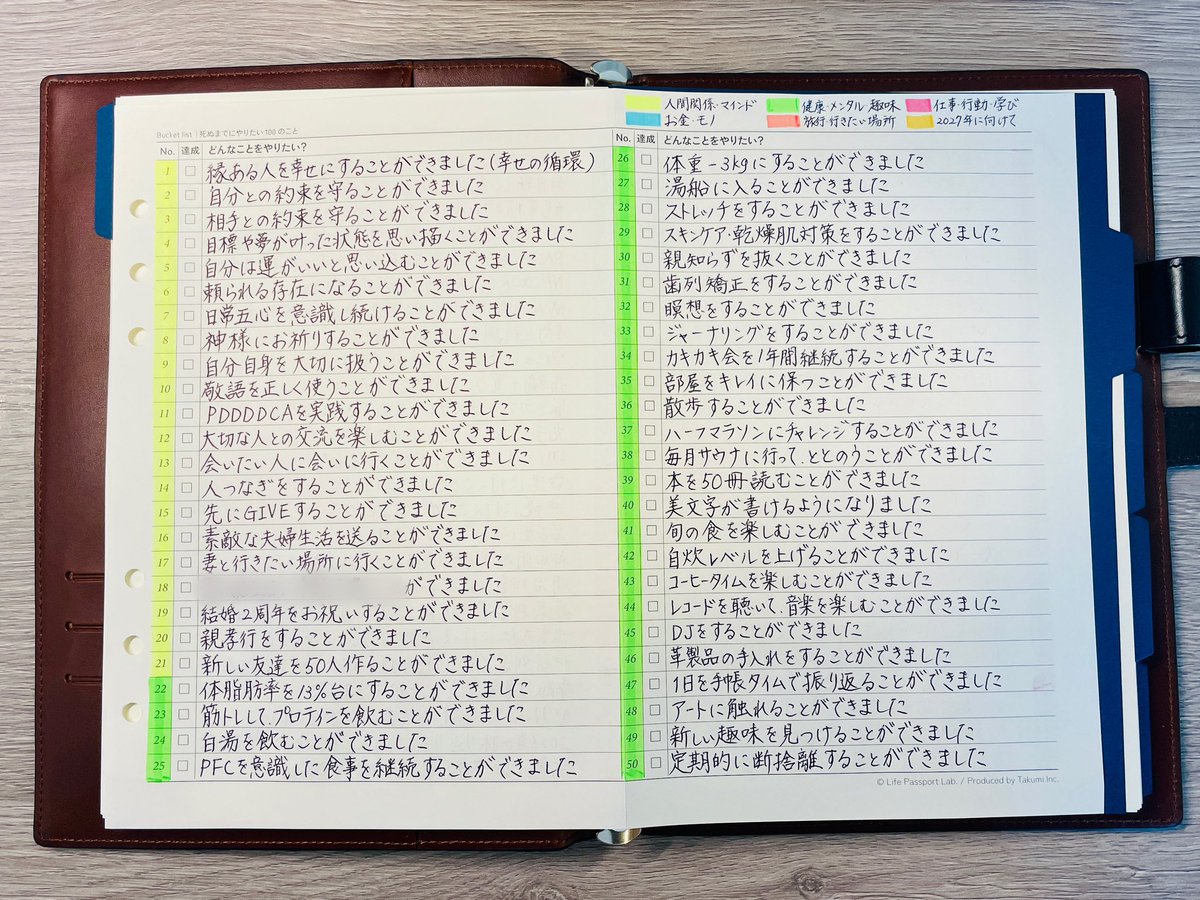 人間関係・マインド 健康・メンタル・趣味 仕事・行動・学び
お金・モノ 旅行・行きたい場所 2027年に向けて
Bucket list | 死ぬまでにやりたい100のこと
No. 達成 どんなことをやりたい?
1 縁ある人を幸せにすることができました(幸せの循環)
2 自分との約束を守ることができました
3 相手との約束を守ることができました
4 目標や夢が叶った状態を思い描くことができました
5 自分は運がいいと思い込むことができました
6 頼られる存在になることができました
7 日常五心を意識し続けることができました
8 神様にお祈りすることができました
9 自分自身を大切に扱うことができました
10 敬語を正しく使うことができました
11 PDDDDCAを実践することができました
12 大切な人との交流を楽しむことができました
13 会いたい人に会いに行くことができました
14 人つなぎをすることができました
15 先にGIVEすることができました
16 素敵な夫婦生活を送ることができました
17 妻と行きたい場所に行くことができました
18 ができました
19 結婚2周年をお祝いすることができました
20 親孝行をすることができました
21 新しい友達を50人作ることができました
22 体脂肪率を13%台にすることができました
23 筋トレして、プロテインを飲むことができました
24 白湯を飲むことができました
25 PFCを意識した食事を継続することができました
No. 達成 どんなことをやりたい?
26 体重-3kgにすることができました
27 湯船に入ることができました
28 ストレッチをすることができました
29 スキンケア・乾燥肌対策をすることができました
30 親知らずを抜くことができました
31 歯列矯正をすることができました
32 瞑想をすることができました
33 ジャーナリングをすることができました
34 カキカキ会を1年間継続することができました
35 部屋をキレイに保つことができました
36 散歩することができました
37 ハーフマラソンにチャレンジすることができました
38 毎月サウナに行って、ととのうことができました
39 本を50冊読むことができました
40 美文字が書けるようになりました
41 旬の食を楽しむことができました
42 自炊レベルを上げることができました
43 コーヒータイムを楽しむことができました
44 レコードを聴いて、音楽を楽しむことができました
45 DJをすることができました
46 革製品の手入れをすることができました
47 1日を手帳タイムで振り返ることができました
48 アートに触れることができました
49 新しい趣味を見つけることができました
50 定期的に断捨離することができました
© Life Passport Lab. / Produced by Takumi Inc.